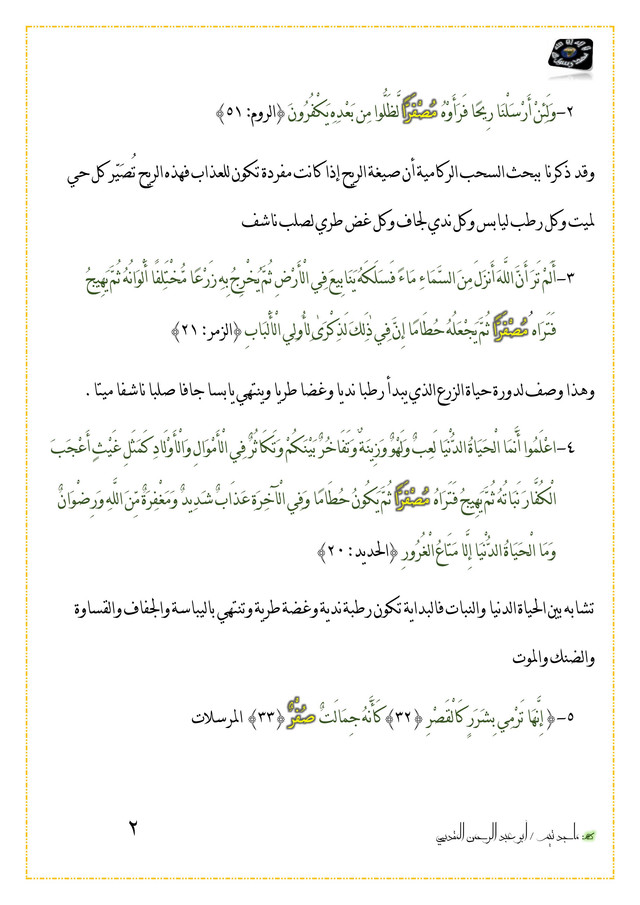 ٢-وَلَئِنْ أَرْسَلْنَا رِيحًا فَرَأَوْهُ مُصْفَرًّا لَّظَلُّوا مِن بَعْدِهِ يَكْفُرُونَ ﴿الروم: ٥١﴾
وقد ذكرنا ببحث السحب الركامية أن صيغة الريح إذا كانت مفردة تكون للعذاب فهذه الريح تُصَيّر كل حي
لميت وكل رطب ليابس وكل ندي لجاف وكل غض طري لصلب ناشف
٣-أَلَمْ تَرَ أَنَّ اللَّهَ أَنزَلَ مِنَ السَّمَاءِ مَاءً فَسَلَكَهُ يَنَابِيعَ فِي الْأَرْضِ ثُمَّ يُخْرِجُ بِهِ زَرْعًا مُّخْتَلِفًا أَلْوَانُهُ ثُمَّ يَهِيجُ
فَتَرَاهُ مُصْفَرًّا ثُمَّ يَجْعَلُهُ حُطَامًا إِنَّ فِي ذَٰلِكَ لَذِكْرَىٰ لِأُولِي الْأَلْبَابِ ﴿الزمر: ٢١﴾
وهذا وصف لدورة حياة الزرع الذي يبدأ رطبا نديا وغضا طريا وينتهي يابسا جافا صلبا ناشفا ميتا .
٤-اعْلَمُوا أَنَّمَا الْحَيَاةُ الدُّنْيَا لَعِبٌ وَلَهْوٌ وَزِينَةٌ وَتَفَاخُرٌ بَيْنَكُمْ وَتَكَاثُرٌ فِي الْأَمْوَالِ وَالْأَوْلَادِ كَمَثَلِ غَيْثٍ أَعْجَبَ
الْكُفَّارَ نَبَاتُهُ ثُمَّ يَهِيجُ فَتَرَاهُ مُصْفَرًّا ثُمَّ يَكُونُ حُطَامًا وَفِي الْآخِرَةِ عَذَابٌ شَدِيدٌ وَمَغْفِرَةٌ مِّنَ اللَّهِ وَرِضْوَانٌ
وَمَا الْحَيَاةُ الدُّنْيَا إِلَّا مَتَاعُ الْغُرُورِ ﴿الحديد: ٢٠﴾
تشابه بين الحياة الدنيا والنبات فالبداية تكون رطبة ندية وغضة طرية وتنتهي باليباسة والجفاف والقساوة
والضنك والموت
٥-﴿إِنَّهَا تَرْمِي بِشَرَرٍ كَالْقَصْرِ ﴿٣٢﴾ كَأَنَّهُ جِمَالَتٌ صُفْرٌ ﴿٣٣﴾ المرسلات
أبو عبد الرحمن المقدسي
٢